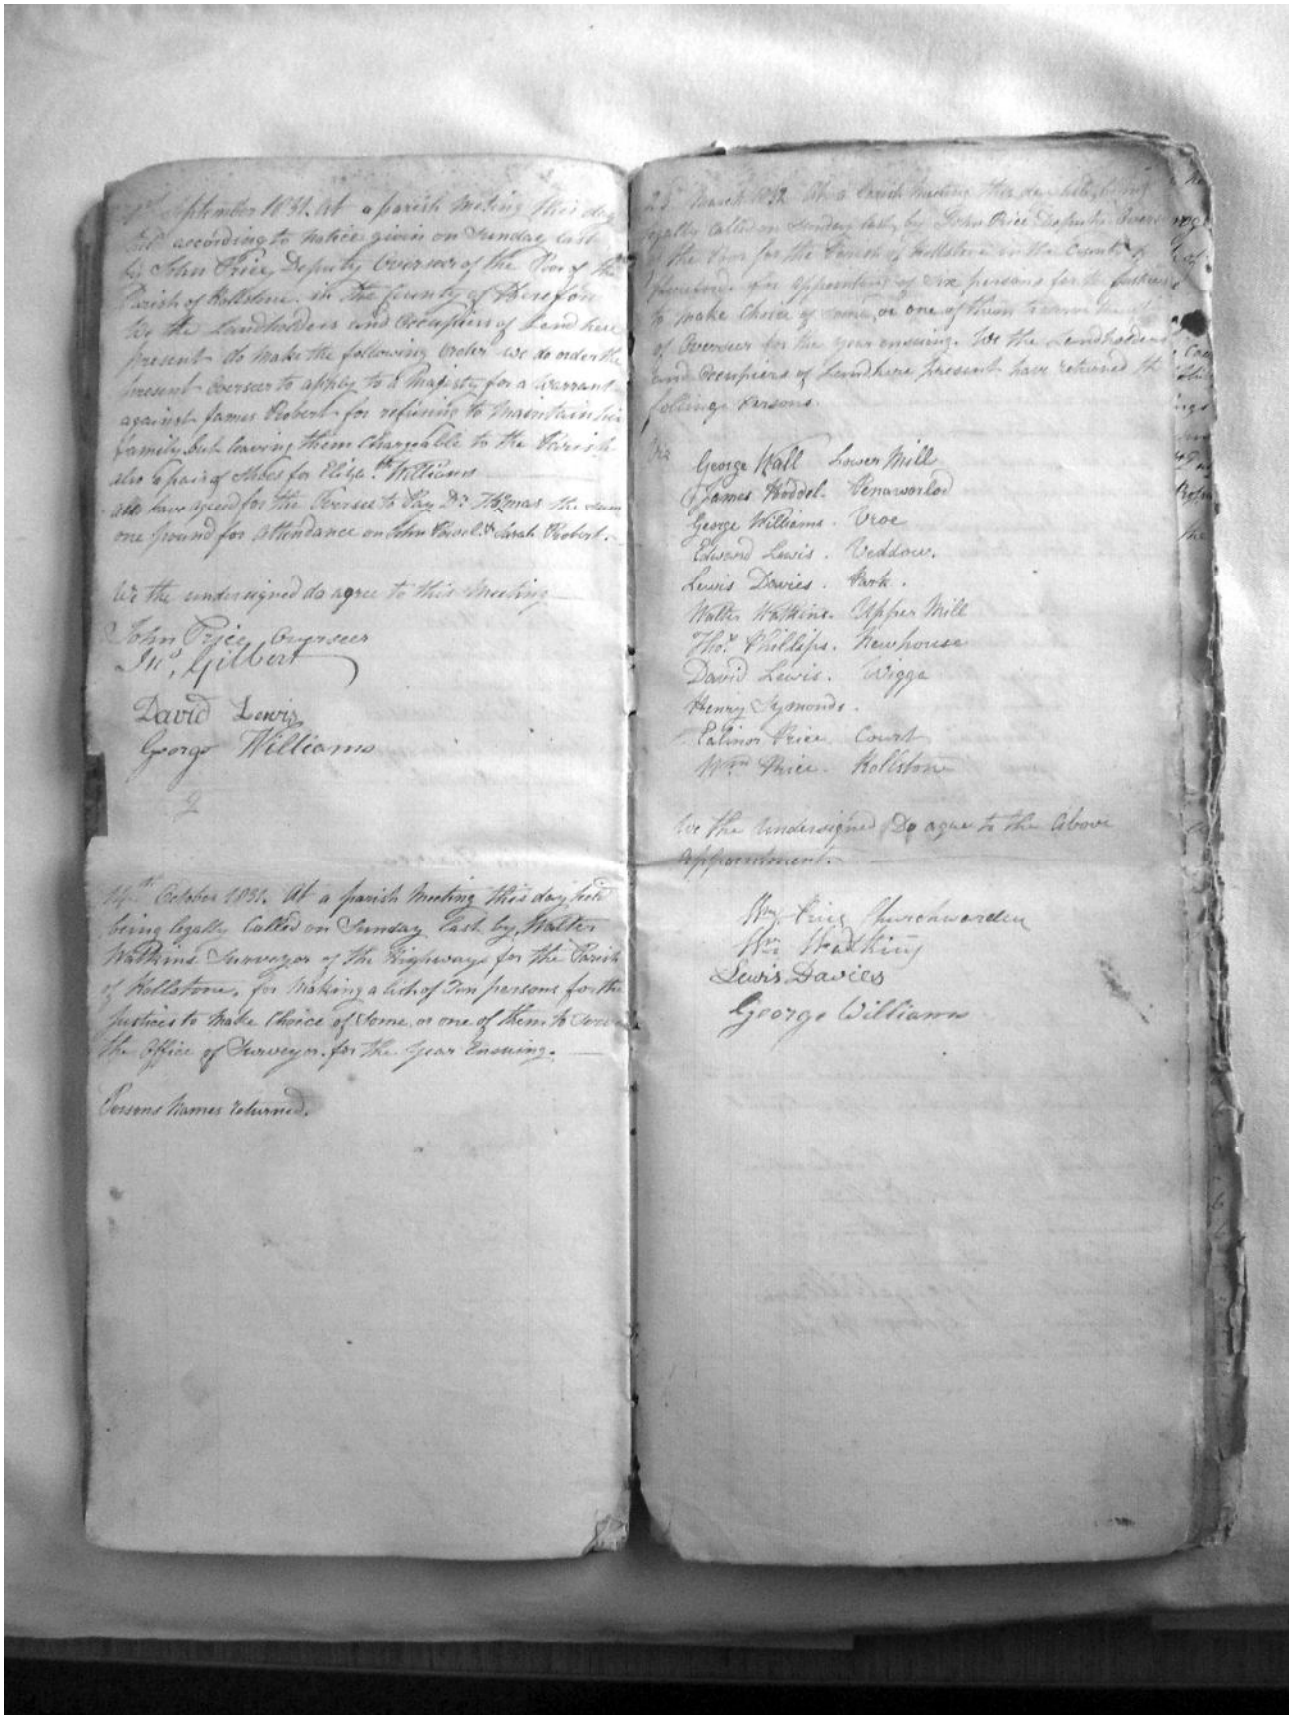 September 1831. At a parish Meeting this day
held according to Notice given on Sunday last
by John Price, Deputy Overseer of the Poor of the
Parish of Rollstone. in the County of Hereford
We the Landholders and Occupiers of Land here
present do make the following Order we do order the
present Overseer to apply to a Majesty for a Warrant
against James Robert for refusing to Maintain his
family but leaving them Chargeable to the Parish
also a pair of Shoes for Eliza.th Williams
also have agreed for the Overseer to Pay Dr. Thomas the sum
one pound for Attendance on John & Sarah Robert.
We the undersigned do agree to this Meeting
John Price, Overseer
Jno, Gilbert
David Lewis
George Williams
2
October 1831. At a parish Meeting this day held
being legally Called on Sunday last by Walter
Watkins Surveyor of the Highways for the Parish
of Rollstone, for Making a list of Ten persons for the
Justices to Make Choice of Some, or one of them to Serve
the Office of Surveyor. for the Year Ensuing.
Persons Names returned.
March 1832 At a Parish Meeting this day held, being
legally Called on Sunday last, by John Price Deputy Overseer
of the Poor for the Parish of Rollstone in the County of
Hereford. for appointing of Six persons for the Justices
to Make Choice of Some, or one of them to serve the office
of Overseer for the year ensuing. We the Landholders
and Occupiers of Land here present have returned the
folling Persons.
Viz
George Wall Lower Mill
James Hoddel. Penaworlod
George Williams. Vroe
Edward Lewis. Veddow.
Lewis Davies. Park.
Walter Watkins. Upper Mill
Thos. Phillips. Newhouse
David Lewis. Wigga
Henry Symonds.
Ealinor Price Court
Wm Price. Rollstone
We the Undersigned Do agree to the Above
Appointment.
Wm Price Churchwarden
Wm Watkins
Lewis Davies
George Williams